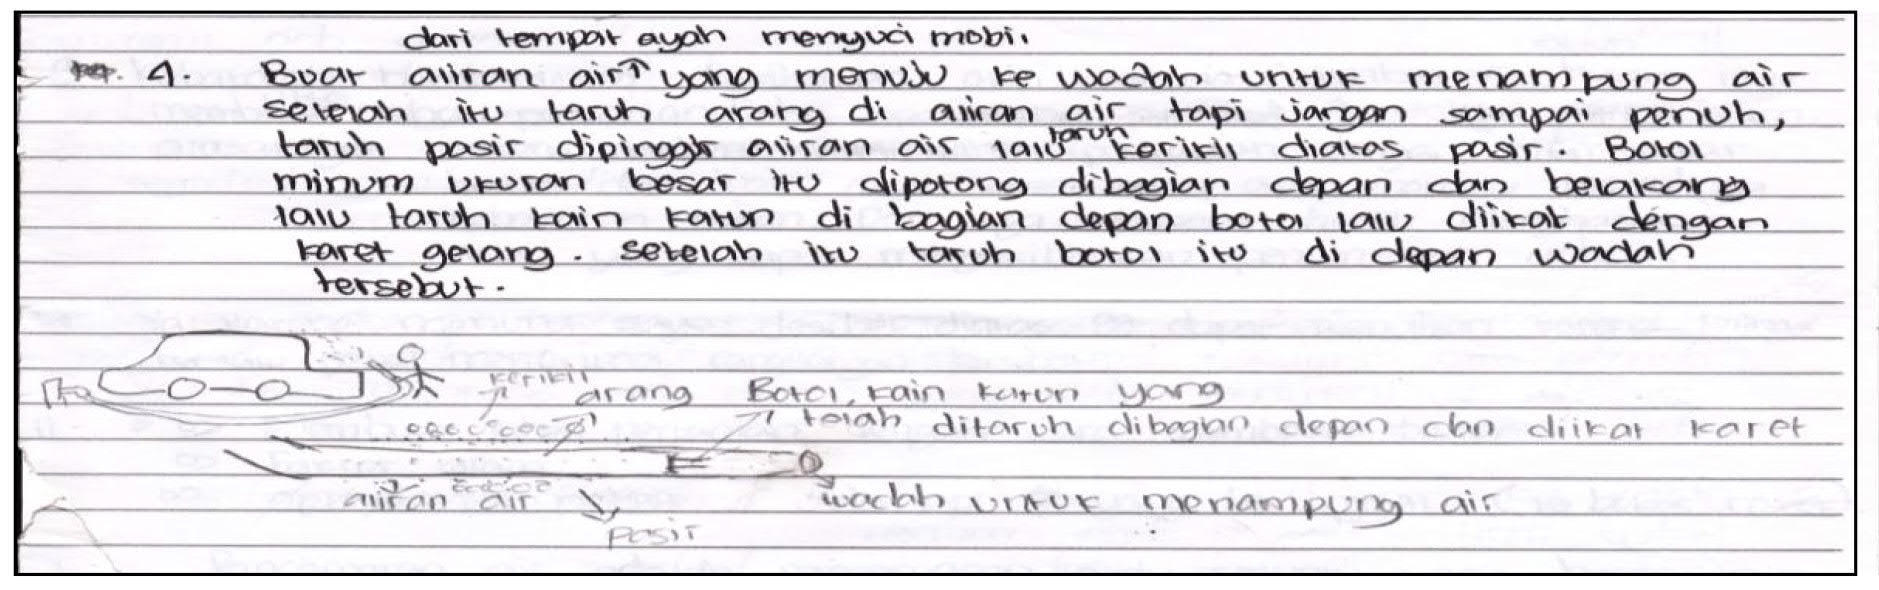 dari tempat ayah menyuci mobil.
4. Buat aliran air yang menuju ke wadah untuk menampung air
setelah itu taruh arang di aliran air tapi jangan sampai penuh,
taruh pasir dipinggir aliran air lalu taruh kerikil diatas pasir. Botol
minum ukuran besar itu dipotong dibagian depan dan belakang
lalu taruh kain katun di bagian depan botol lalu diikat dengan
karet gelang. setelah itu taruh botol itu di depan wadah
tersebut.
kerikil
arang Botol, kain katun yang
telah ditaruh dibagian depan dan diikat karet
aliran air
wadah untuk menampung air
pasir